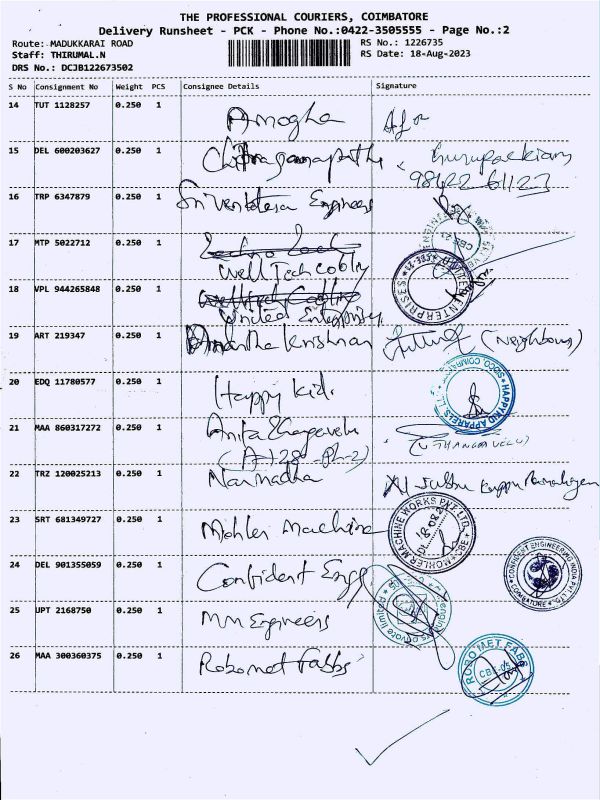 THE PROFESSIONAL COURIERS, COIMBATORE
Delivery Runsheet - PCK - Phone No.:0422-3505555 - Page No.:2
Route: MADUKKARAI ROAD
RS No.: 1226735
Staff: THIRUMAL.N
RS Date: 18-Aug-2023
DRS No.: DCJB122673502
S No Consignment No Weight PCS Consignee Details Signature
14 TUT 1128257 0.250 1 Amogha
15 DEL 600203627 0.250 1 Chitraganapathy
98422 61123
16 TRP 6347879 0.250 1 Sri Venkatesa Engineers
17 MTP 5022712 0.250 1
Well Tech
18 VPL 944265848 0.250 1
United Enterprises
ENTERPRISES
19 ART 219347 0.250 1 Anantha Krishnan (Neighbour)
20 EDQ 11780577 0.250 1 Happy Kid.
HAPPYKID APPARELS
21 MAA 860317272 0.250 1 Anita
(A-128-Ph-2) (U THANGAVELU)
22 TRZ 120025213 0.250 1 Narmadha
23 SRT 681349727 0.250 1 Mohler Machine
MOHLER MACHINE WORKS PVT LTD. CBE
24 DEL 901355059 0.250 1 Confident Engg
CONFIDENT ENGINEERING INDIA PVT. LTD. COIMBATORE
25 UPT 2168750 0.250 1 MM Engineers
26 MAA 300360375 0.250 1 Robomet Fabbs
ROBO MET FABS
CBE-05